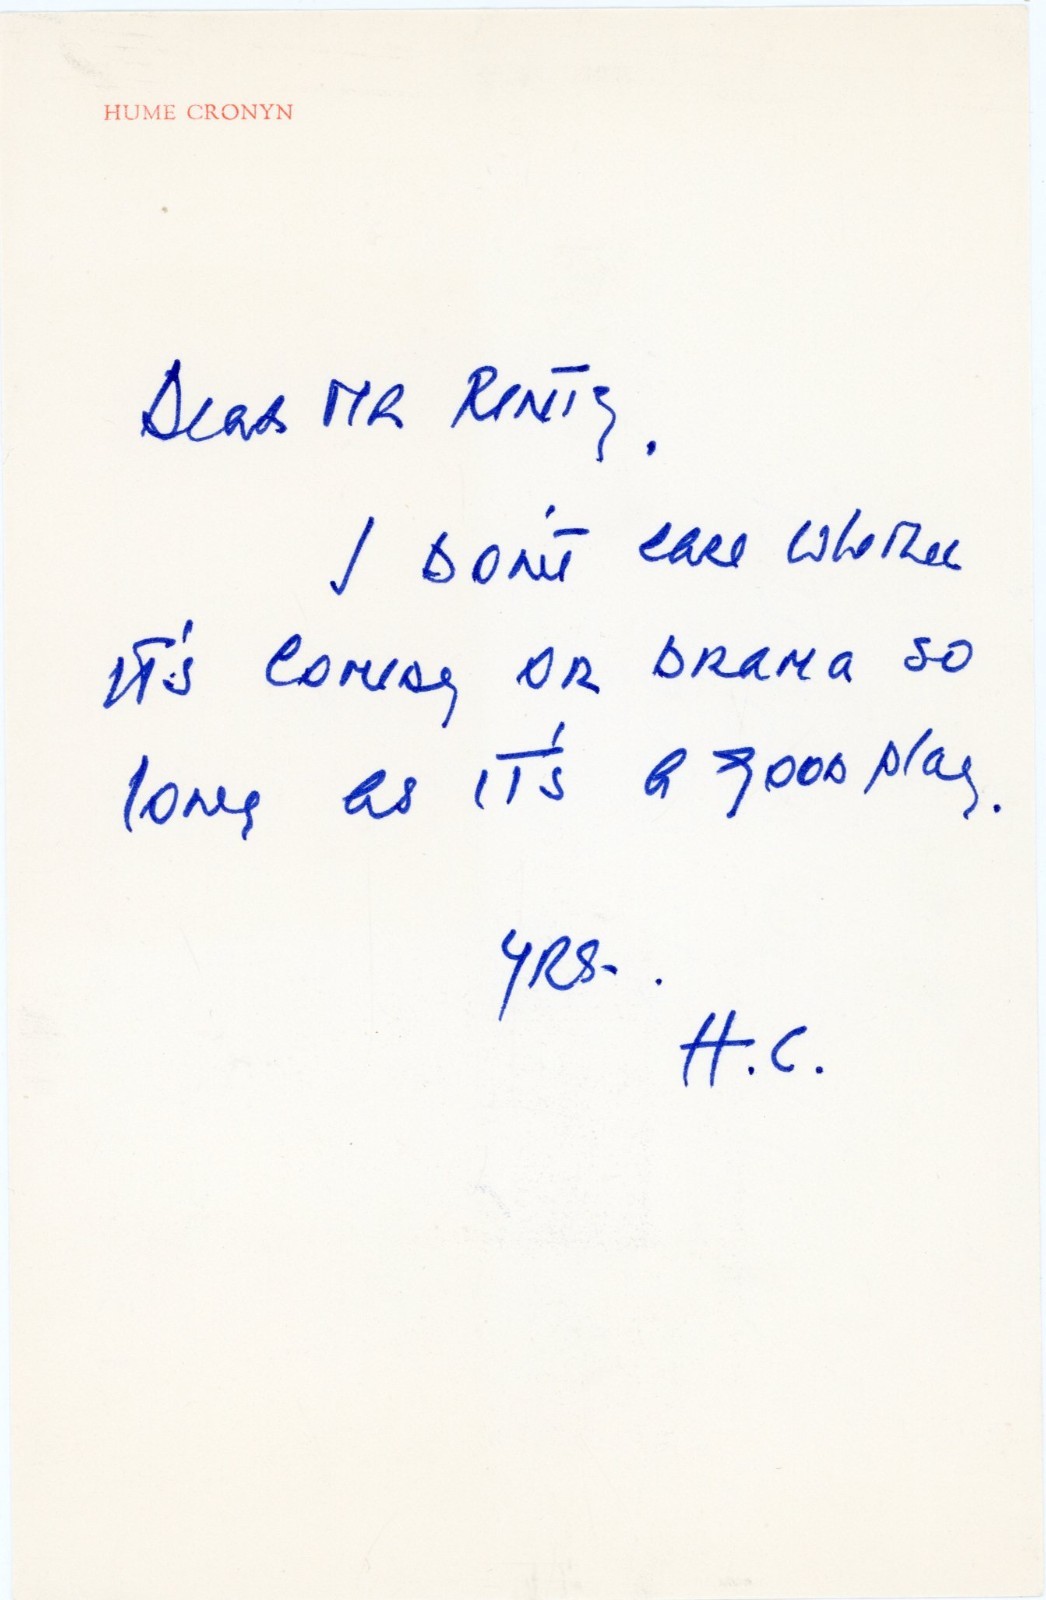 HUME CRONYN
Dear MR
I DON'T care whether
IT'S COMEDY OR DRAMA SO
long as IT'S a good play.
YRS.
H.C.